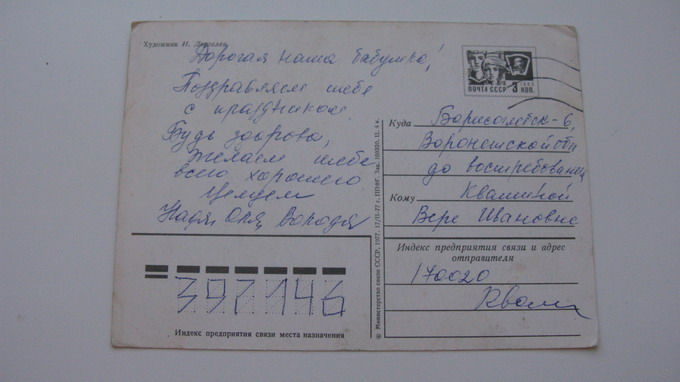 Художник И. Дергилев
Дорогая наша бабушка!
Поздравляем тебя
с праздником.
Будь здорова,
желаем тебе
всего хорошего
Целуем
Надя, Оля, Володя
ПОЧТА СССР 3 КОП.
Куда Борисоглебск-6,
Воронежской обл
до востребования
Кому Квашниной
Вере Ивановне
Индекс предприятия связи и адрес
отправителя
170020
397146
Индекс предприятия связи места назначения
© Министерство связи СССР, 1977.